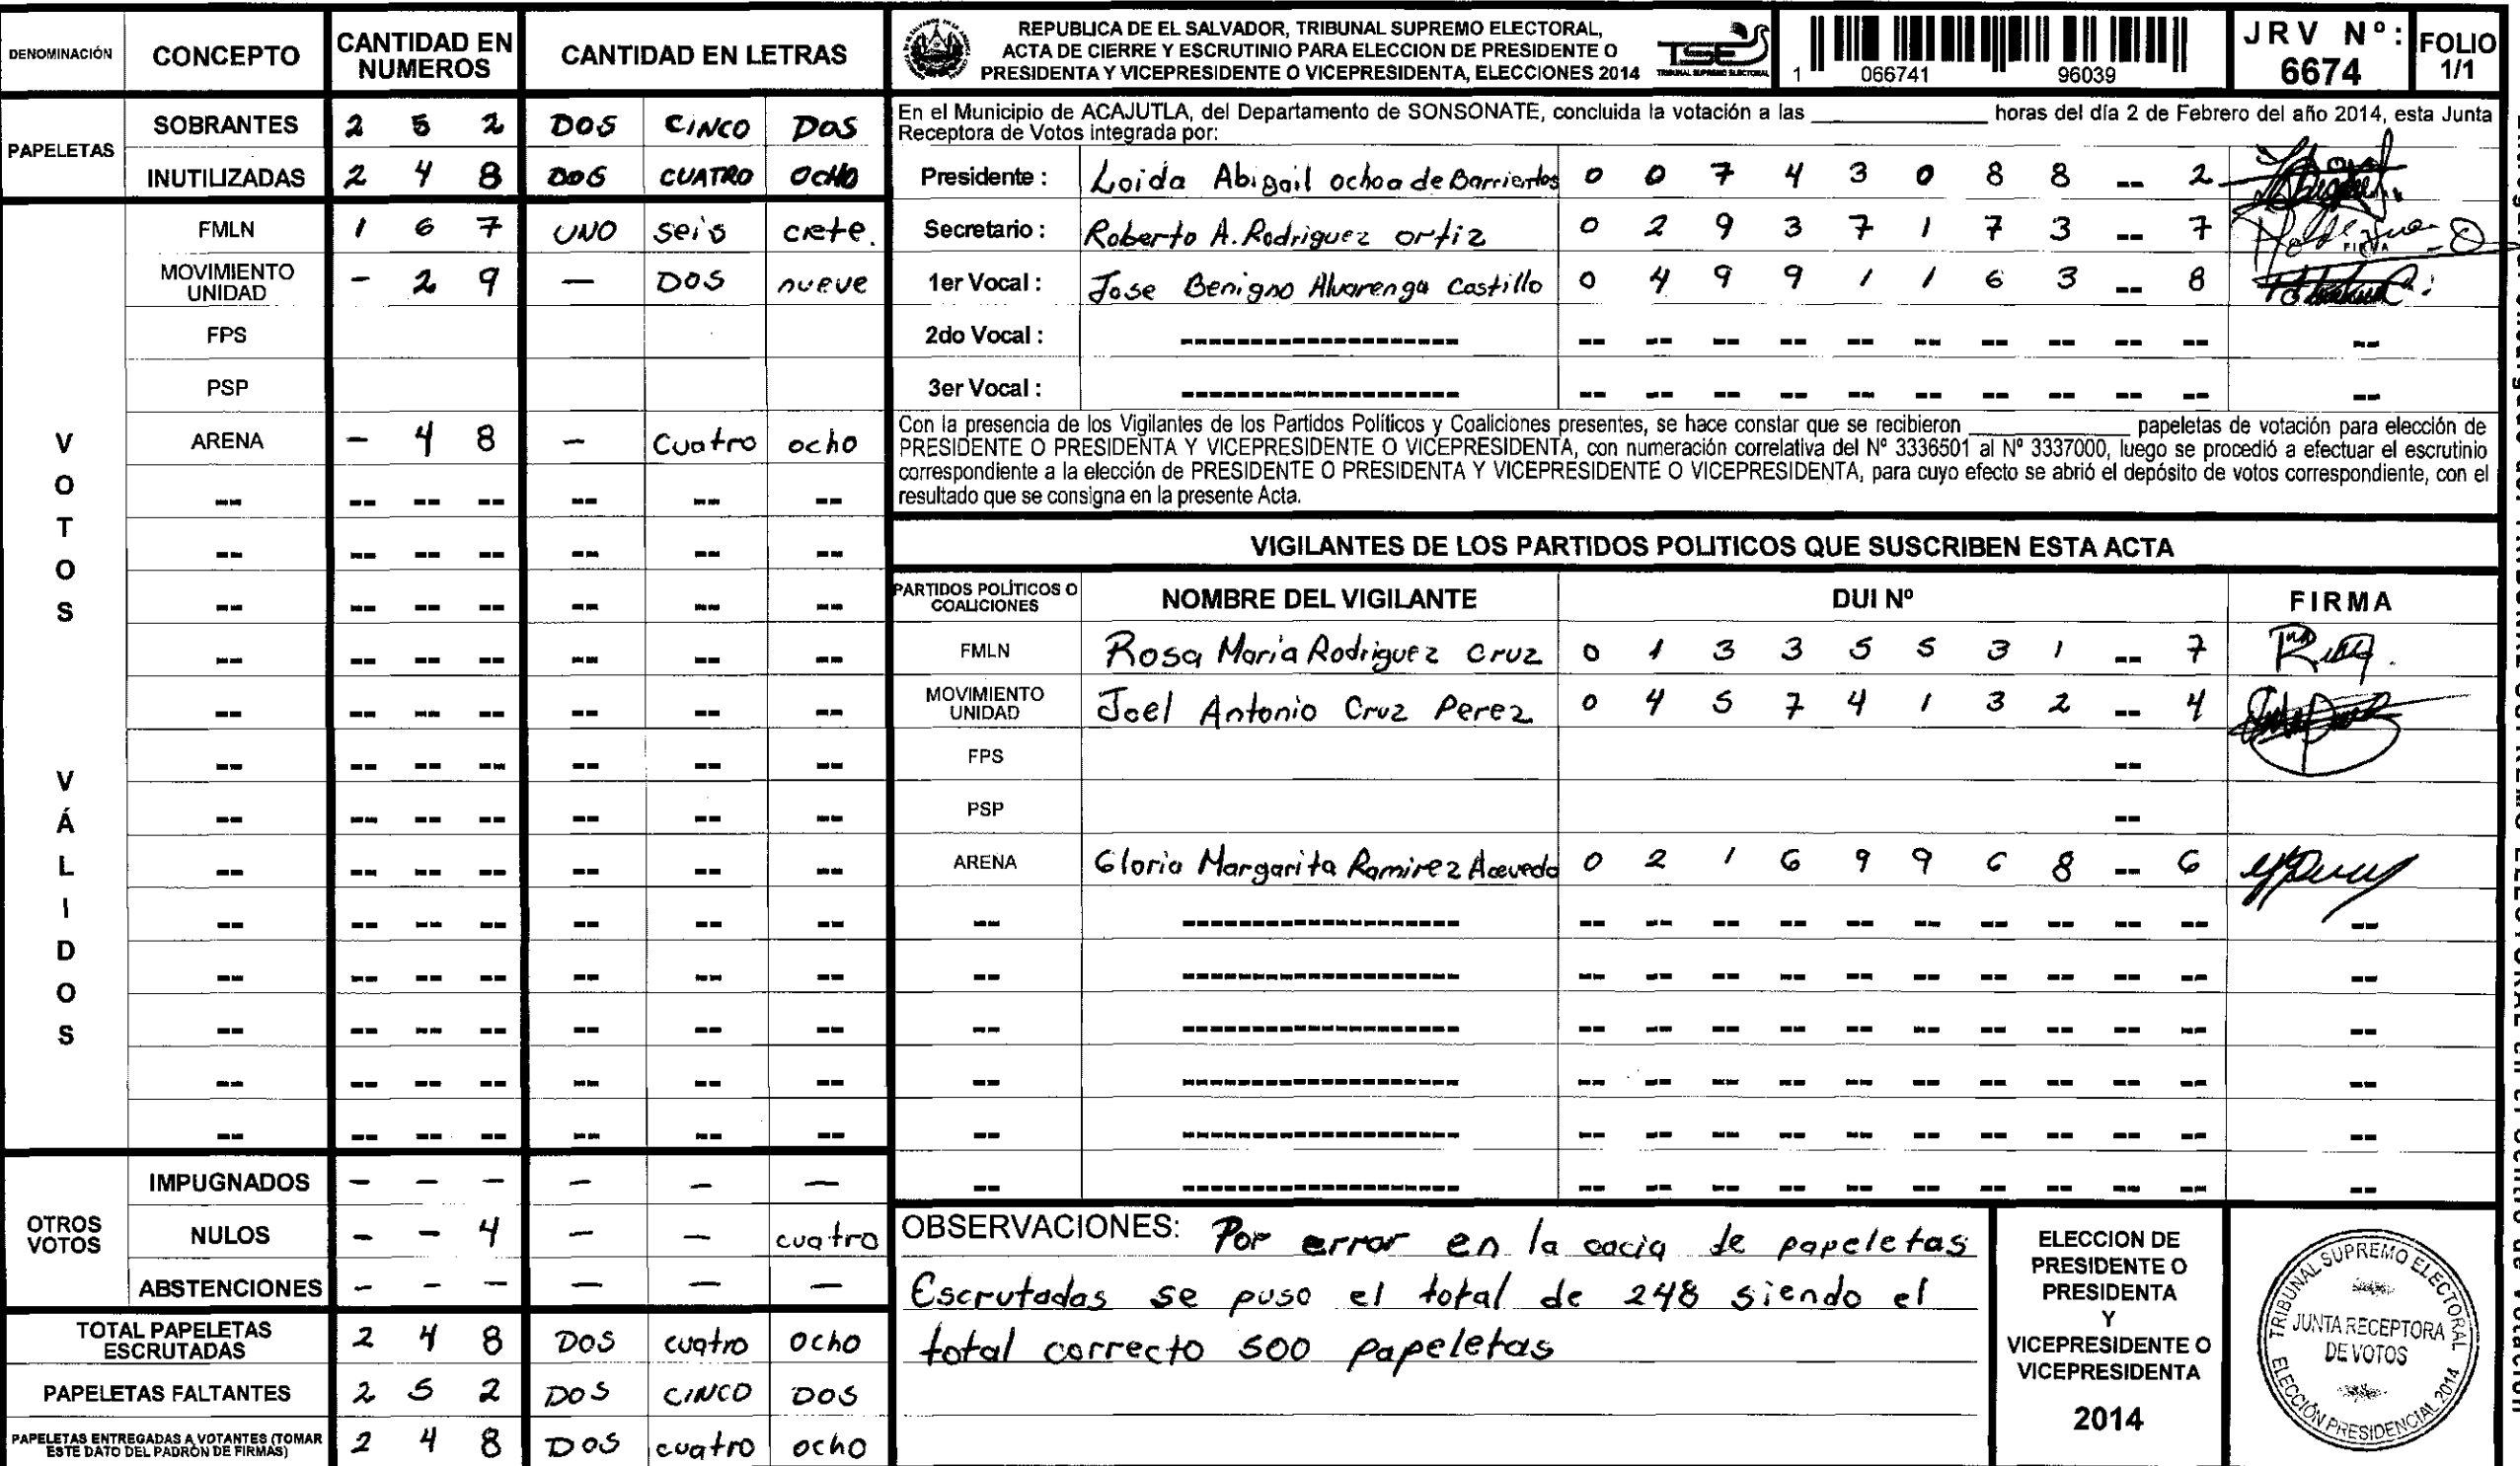 DENOMINACIÓN CONCEPTO CANTIDAD EN NUMEROS CANTIDAD EN LETRAS
PAPELETAS
SOBRANTES 2 5 2 DOS CINCO DOS
INUTILIZADAS 2 4 8 DOS CUATRO OCHO
VOTOS VÁLIDOS
FMLN 1 6 7 UNO seis ciete.
MOVIMIENTO UNIDAD - 2 9 — DOS nueve
FPS
PSP
ARENA - 4 8 — Cuatro ocho
OTROS VOTOS
IMPUGNADOS - - - - - -
NULOS - - 4 - - cuatro
ABSTENCIONES - - - - - -
TOTAL PAPELETAS ESCRUTADAS 2 4 8 DOS cuatro ocho
PAPELETAS FALTANTES 2 5 2 DOS CINCO DOS
PAPELETAS ENTREGADAS A VOTANTES (TOMAR ESTE DATO DEL PADRÓN DE FIRMAS) 2 4 8 DOS cuatro ocho
REPUBLICA DE EL SALVADOR, TRIBUNAL SUPREMO ELECTORAL,
ACTA DE CIERRE Y ESCRUTINIO PARA ELECCION DE PRESIDENTE O
PRESIDENTA Y VICEPRESIDENTE O VICEPRESIDENTA, ELECCIONES 2014
TSE
TRIBUNAL SUPREMO ELECTORAL
1 066741 96039
JRV Nº: 6674
FOLIO 1/1
En el Municipio de ACAJUTLA, del Departamento de SONSONATE, concluida la votación a las ____ horas del día 2 de Febrero del año 2014, esta Junta
Receptora de Votos integrada por:
Presidente : Loida Abigail ochoa de Barrientos 0 0 7 4 3 0 8 8 -- 2
Secretario : Roberto A. Rodriguez ortiz 0 2 9 3 7 1 7 3 -- 7
FIRMA
1er Vocal : Jose Benigno Alvarenga Castillo 0 4 9 9 1 1 6 3 -- 8
2do Vocal :
3er Vocal :
Con la presencia de los Vigilantes de los Partidos Políticos y Coaliciones presentes, se hace constar que se recibieron ____ papeletas de votación para elección de
PRESIDENTE O PRESIDENTA Y VICEPRESIDENTE O VICEPRESIDENTA, con numeración correlativa del Nº 3336501 al Nº 3337000, luego se procedió a efectuar el escrutinio
correspondiente a la elección de PRESIDENTE O PRESIDENTA Y VICEPRESIDENTE O VICEPRESIDENTA, para cuyo efecto se abrió el depósito de votos correspondiente, con el
resultado que se consigna en la presente Acta.
VIGILANTES DE LOS PARTIDOS POLITICOS QUE SUSCRIBEN ESTA ACTA
PARTIDOS POLÍTICOS O COALICIONES NOMBRE DEL VIGILANTE DUI Nº FIRMA
FMLN Rosa Maria Rodriguez cruz 0 1 3 3 5 5 3 1 -- 7
MOVIMIENTO UNIDAD Joel Antonio Cruz Perez 0 4 5 7 4 1 3 2 -- 4
FPS --
PSP --
ARENA Gloria Margarita Ramirez Acevedo 0 2 1 6 9 9 6 8 -- 6
OBSERVACIONES: Por error en la cacia de papeletas
Escrutadas se puso el total de 248 siendo el
total correcto 500 papeletas
ELECCION DE
PRESIDENTE O
PRESIDENTA
Y
VICEPRESIDENTE O
VICEPRESIDENTA
2014
TRIBUNAL SUPREMO ELECTORAL
JUNTA RECEPTORA
DE VOTOS
ELECCIÓN PRESIDENCIAL 2014